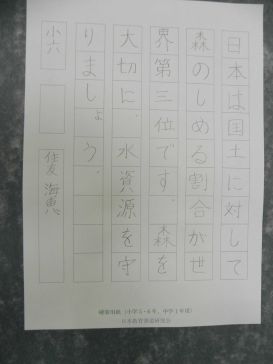 日本は国土に対して
森のしめる割合がせ
界第三位です。森を
大切に、水資源を守
りましょう。
小六
海恵
硬筆用紙（小学5・6年、中学1年用）
日本教育書道研究会